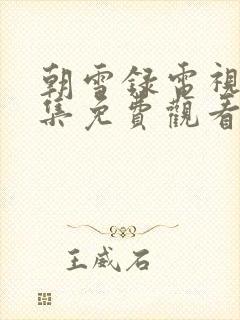 朝雪錄電視
集免費觀看
王威石